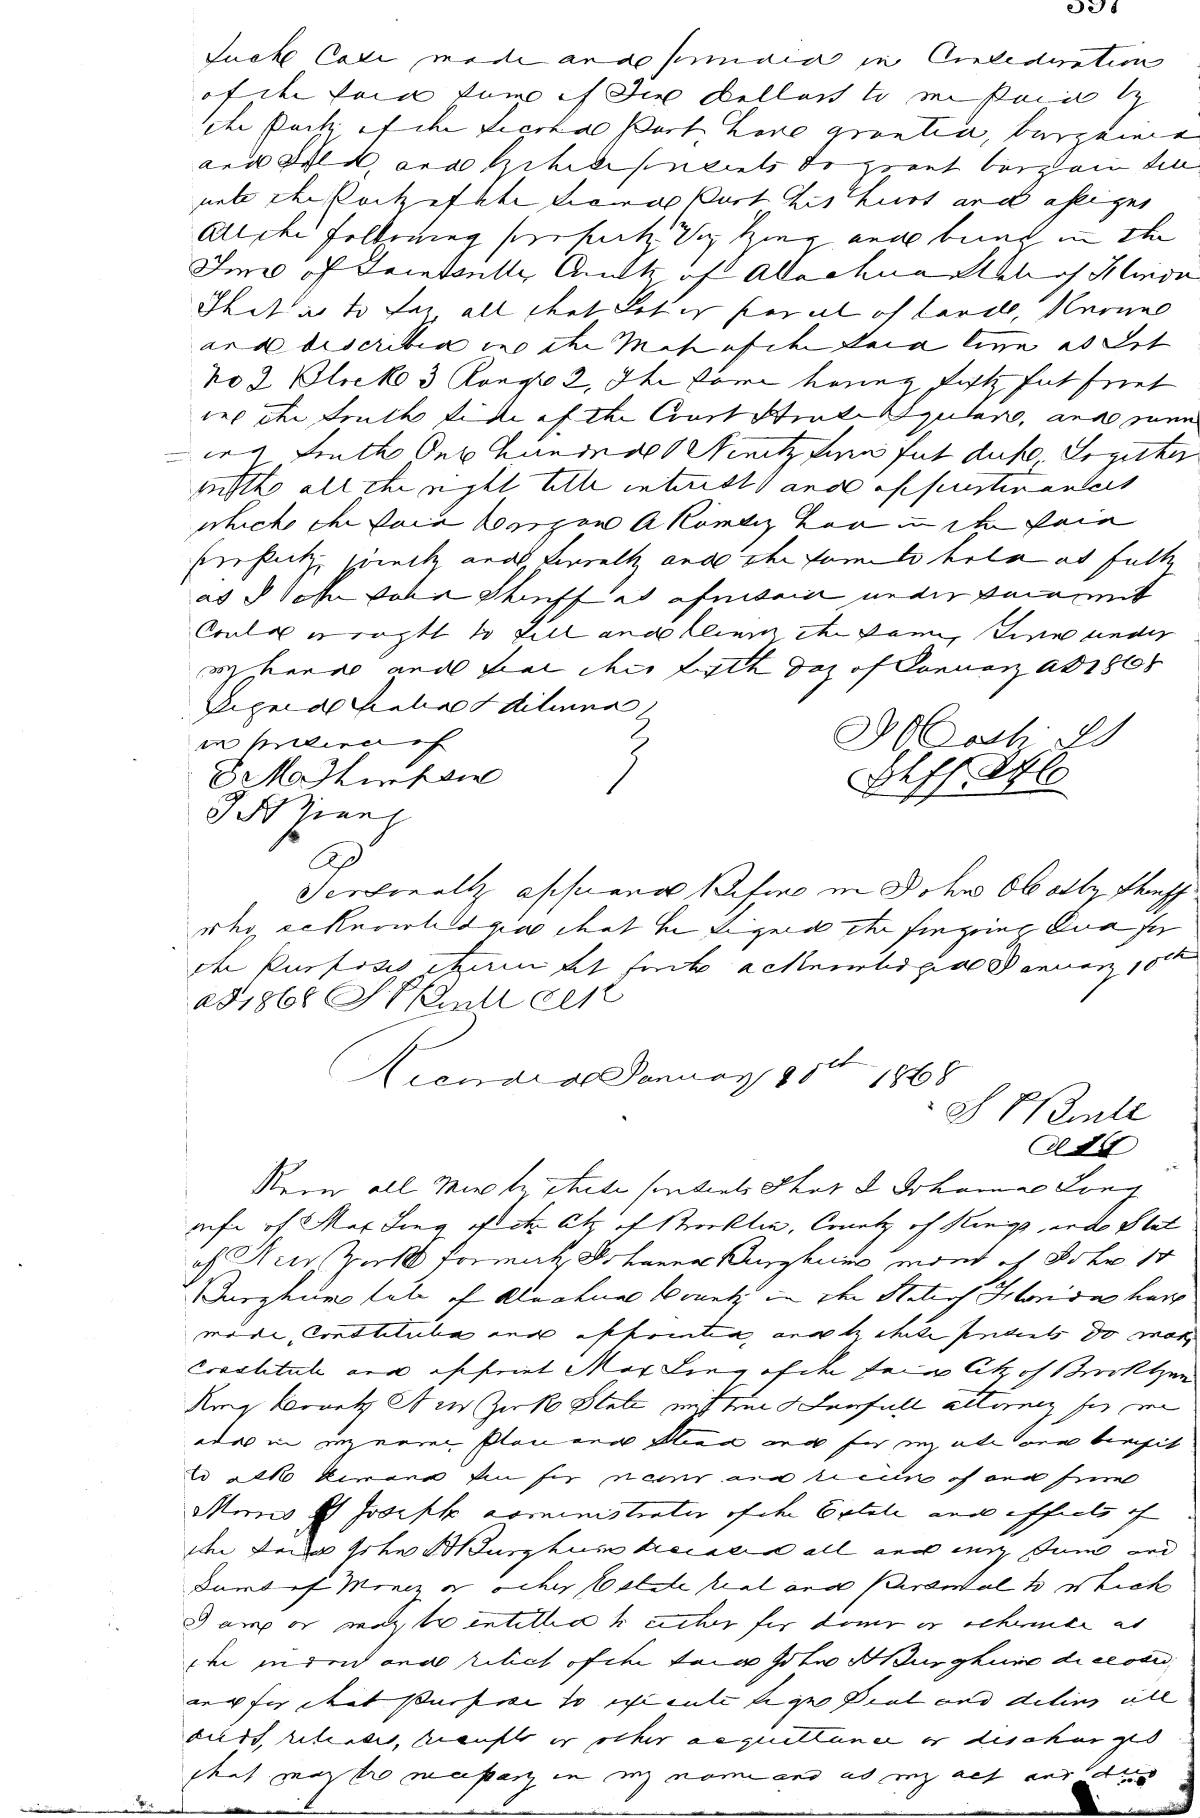 397
Such Case made and provided in Consideration
of the said sum of Ten dollars to me paid by
the Party of the Second Part, have granted, bargained
and Sold, and by these presents do grant bargain sell
unto the Party of the Second Part his heirs and assigns
All the following property Viz lying and being in the
Town of Gainesville, County of Alachua State of Florida
That is to say, all that Lot or parcel of land, Known
and described in the Map of the said town as Lot
No 2 Block 3 Range 2, The same having sixty feet front
on the South side of the Court House Square, and runn
ing South One hundred & Ninety seven feet deep, Together
with all the right title interest and appurtenances
which the said A Ramsey had in the said
property, jointly and severally and the same to hold as fully
as I the said Sheriff as aforesaid under said writ
Could or ought to sell and convey the same, Given under
my hand and seal this sixth day of January AD 1868
Signed sealed & delivered
in presence of
E M Thompson
J H
J O Cosby LS
Shff A C
Personally appeared Before me John O Cosby Sheriff
who acknowledged that he signed the foregoing Deed for
the Purposes therein set forth acknowledged January 10th
AD 1868 Clk
Recorded January 10th 1868
Clk
Know all Men by these presents That I Johanna Long
wife of Max Long of the City of Brooklin, County of Kings and State
of New York formerly Johanna Burgheim widow of John H
Burgheim late of Alachua County in the State of Florida have
made, constituted and appointed, and by these presents do make
constitute and appoint Max Long of the said City of Brooklynn
King County New York State my true & Lawfull attorney for me
and in my name Place and Stead and for my use and benefit
to ask demand sue for recover and receive of and from
Morris Joseph administrator of the Estate and effects of
the said John H Burgheim deceased all and every Sum and
Sums of Money or other Estate real and Personal to which
I am or may be entitled to either for dower or otherwise as
the widow and relict of the said John H Burgheim deceased
and for that Purpose to execute sign Seal and deliver all
deeds, releases, receipts or other acquittance or discharges
that may be necessary in my name and as my act and deed